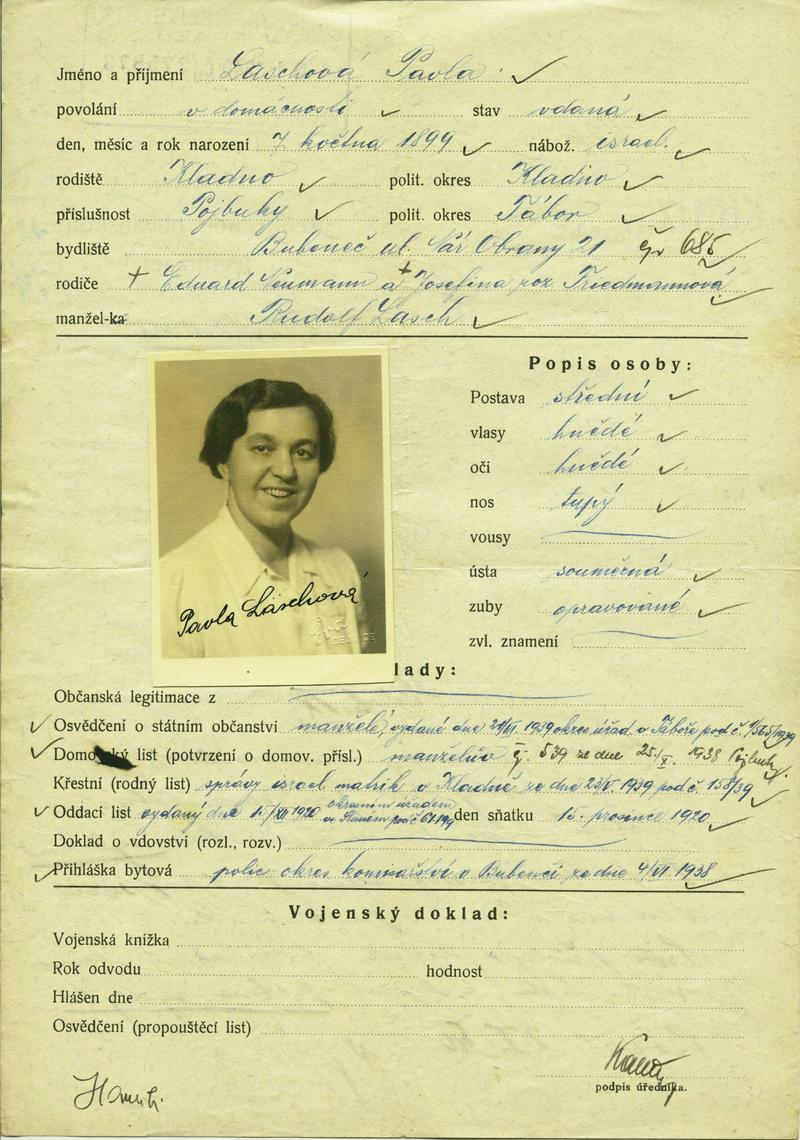 Jméno a příjmení Laschová Pavla
povolání v domácnosti stav vdaná
den, měsíc a rok narození 7. května 1899 nábož. israel.
rodiště Kladno polit. okres Kladno
příslušnost Pojbuky polit. okres Tábor
bydliště Bubeneč ul. Nár. Obrany 21 čp. 685
rodiče + Eduard Neumann a + Josefina roz. Friedmannová
manžel-ka Rudolf Lasch
Popis osoby:
Postava střední
vlasy hnědé
oči hnědé
nos tupý
vousy
ústa souměrná
zuby opravované
zvl. znamení
Pavla Laschová
DEJVICE
lady:
Občanská legitimace z
Osvědčení o státním občanství vydané dne okres. úřad. v Táboře pod č.
Domovský list (potvrzení o domov. přísl.) manželův č. 539 ze dne 25./X. 1938 Pojbuky
Křestní (rodný list) správy israel. matrik v Kladně ze dne 23/V. 1939 pod č. 158/39
Oddací list vydaný dne 15/XII 1920 okresním úřadem ve pod č. den sňatku 15. prosince 1920
Doklad o vdovství (rozl., rozv.)
Přihláška bytová polic. okres. komisařství v Bubenči ze dne 4/VI 1938
Vojenský doklad:
Vojenská knížka
Rok odvodu hodnost
Hlášen dne
Osvědčení (propouštěcí list)
podpis úředníka.